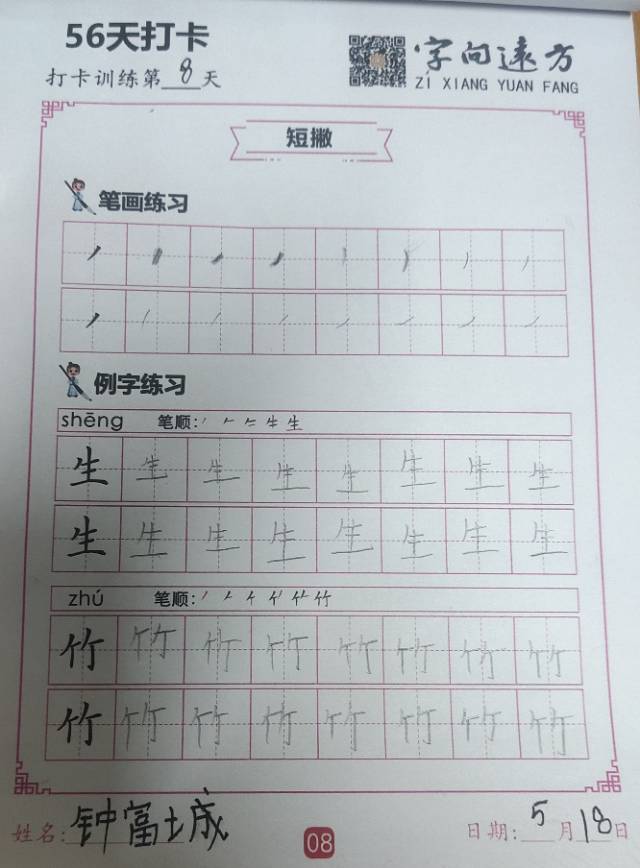 56天打卡
打卡训练第8天
字向远方
ZÌ XIANG YUAN FANG
短撇
笔画练习
例字练习
shēng 笔顺: 生
生 生 生 生 生 生 生 生
生 生 生 生 生 生 生 生
zhú 笔顺: 竹
竹 竹 竹 竹 竹 竹 竹 竹
竹 竹 竹 竹 竹 竹 竹 竹
姓名:钟富城 08 日期:5月18日